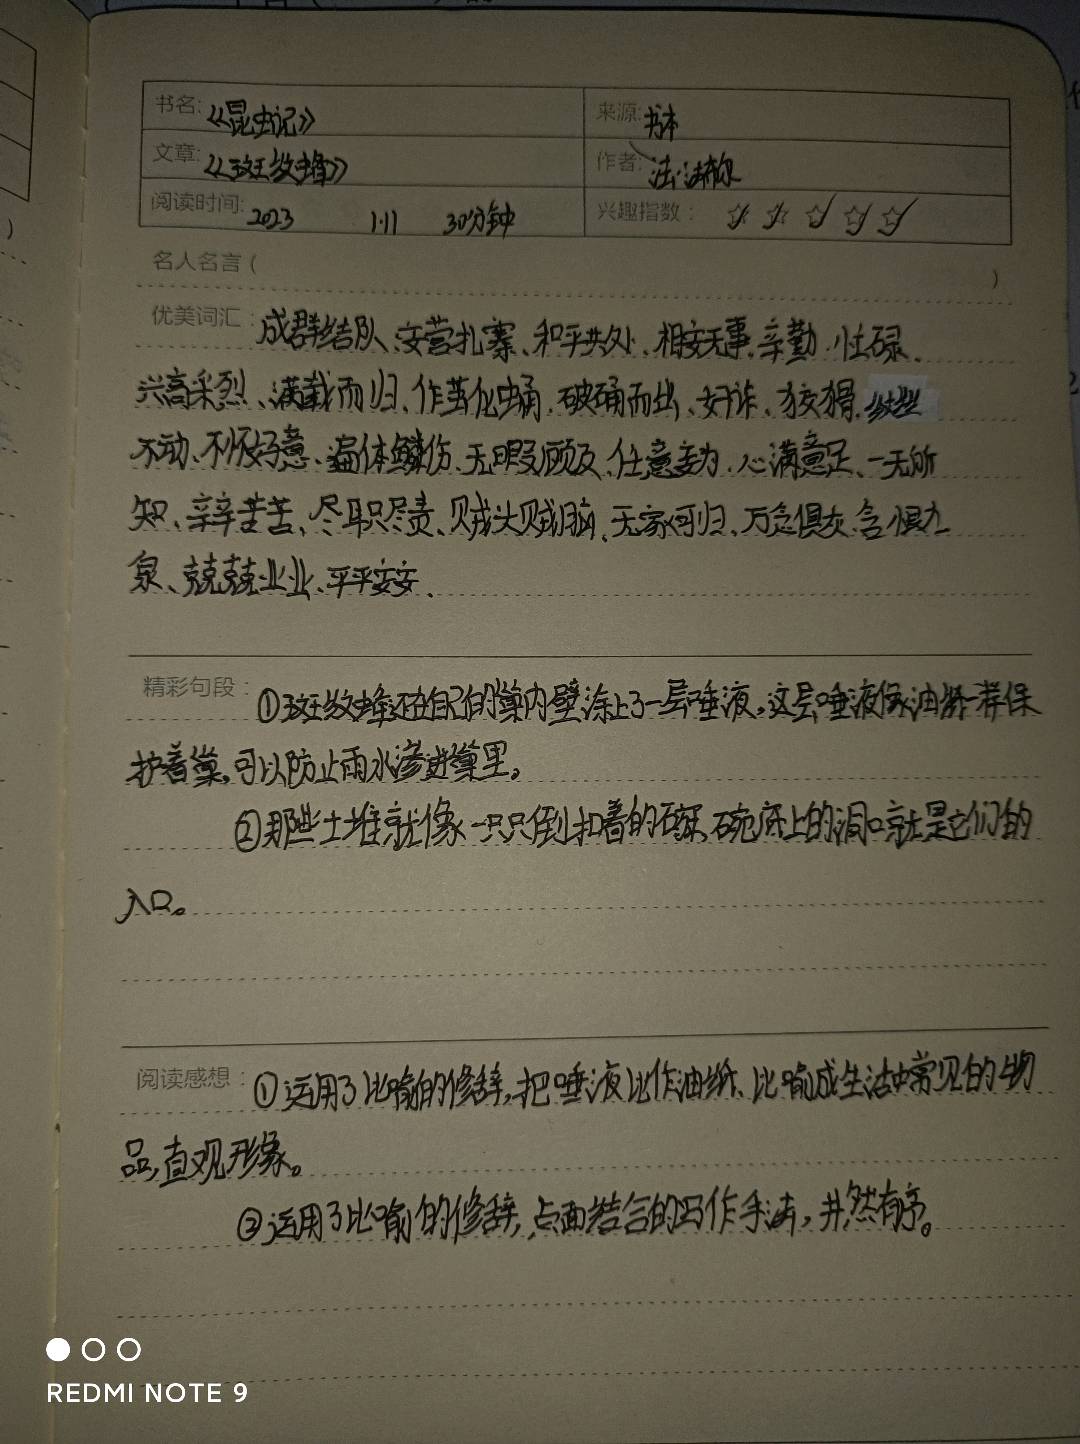 书名: 《昆虫记》 来源: 书本
文章: 《斑纹蜂》 作者: 法·法布尔
阅读时间: 2023 1.11 30分钟 兴趣指数: ☆ ☆ ☆ ☆ ☆
名人名言 ( )
优美词汇: 成群结队、安营扎寨、和平共处、相安无事、辛勤、忙碌、
兴高采烈、满载而归、作茧化蛹、破蛹而出、奸诈、狡猾、纹丝
不动、不怀好意、遍体鳞伤、无暇顾及、任意妄为、心满意足、一无所
知、辛辛苦苦、尽职尽责、贼头贼脑、无家可归、万念俱灰、含恨九
泉、兢兢业业、平平安安、
精彩句段: ①斑纹蜂还在自己的巢内壁涂上了一层唾液,这层唾液像油纸一样保
护着巢,可以防止雨水渗进巢里。
②那些土堆就像一只只倒扣着的碗,碗底上的洞口就是它们的
入口。
阅读感想: ①运用了比喻的修辞,把唾液比作油纸、比喻成生活中常见的物
品,直观形象。
②运用了比喻的修辞,点面结合的写作手法,井然有序。
REDMI NOTE 9